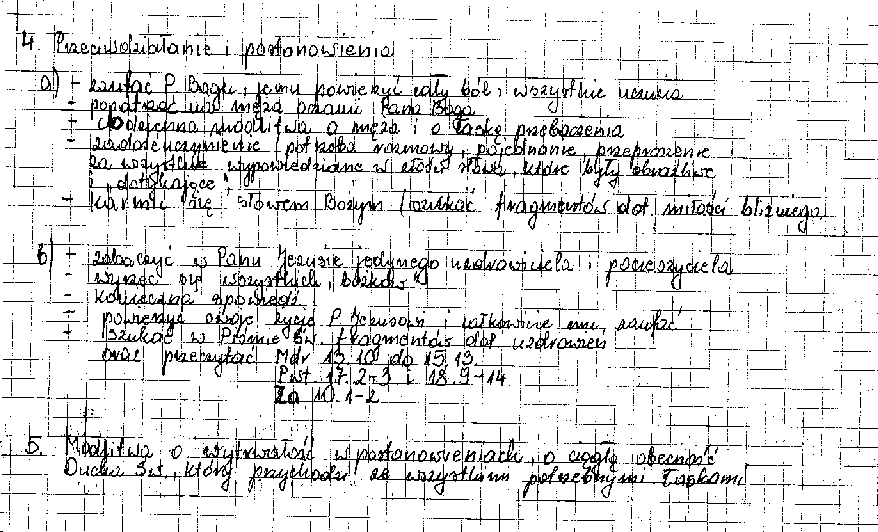 4. Przeciwdziałanie i postanowienia
a) - zaufać P. Bogu, jemu powierzyć cały ból i wszystkie uczucia
- popatrzeć na męża oczami Pana Boga
- codzienna modlitwa o męża i o łaskę przebaczenia
- zadośćuczynienie / potrzeba rozmowy, pojednanie, przeproszenie
za wszystkie wypowiedziane w złości słowa, które były obraźliwe
i „dotykające”,
- karmić się Słowem Bożym (szukać fragmentów dot. miłości bliźniego
b) - zobaczyć w Panu Jezusie jedynego uzdrowiciela i pocieszyciela
- wyrzec się wszystkich „bożków”
- konieczna spowiedź
- powierzyć swoje życie P. Jezusowi i całkowicie mu zaufać
- szukać w Piśmie Św. fragmentów dot. uzdrowień
oraz przeczytać Mdr 13.10 do 15.13.
Pwt. 17. 2-3 i 18. 9-14
Za 10. 1-2
5. Modlitwa o wytrwałość w postanowieniach, o ciągłą obecność
Ducha Św., który przychodzi ze wszystkimi potrzebnymi łaskami